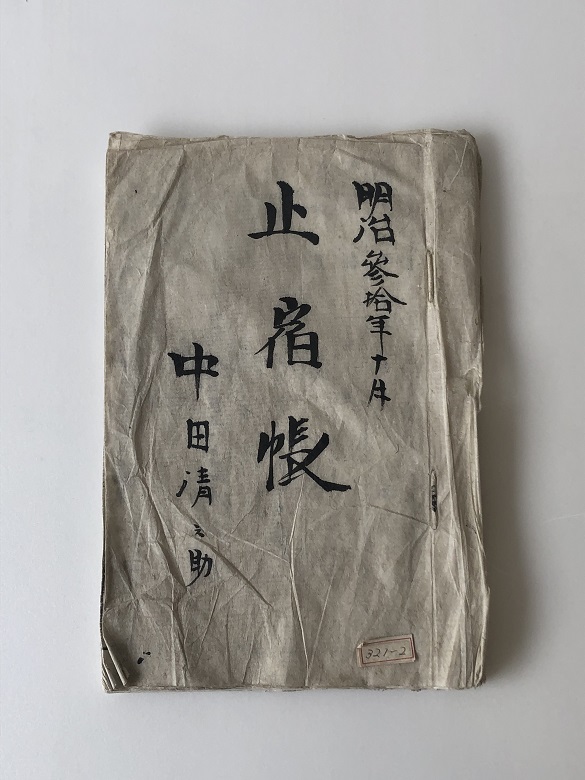 明治參拾年十月
止宿帳
中田清之助
321-2